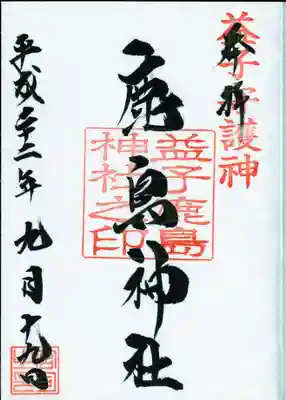 益子守護神
奉拝
鹿島神社
益子鹿島
神社之印
平成二十二年九月十九日